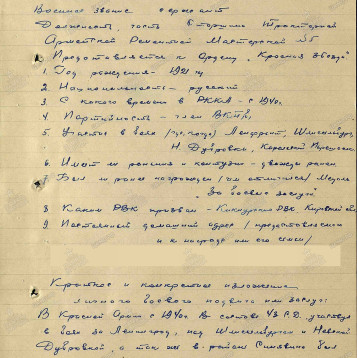 Военное звание сержант
Должность, часть Старшина Тракторной
Армейской Ремонтной Мастерской №5
Представляется к Ордену "Красная Звезда"
1. Год рождения - 1921 г.
2. Национальность - русский
3. С какого времени в РККА - с 1940г.
4. Партийность - член ВКП/б/
5. Участие в боях /где, когда/ Ленфронт, Шлиссельбург,
Н. Дубровка, Карельский
6. Имеет ли ранения и контузии - дважды ранен
7. Был ли ранее награжден /чем отличился/ Медаль
"За боевые заслуги"
8. Каким РВК призван - Кикнурским РВК Кировской обл
9. Постоянный домашний адрес /представляемого
к награде или его семьи/
Краткое и конкретное изложение
личного боевого подвига или заслуг:
В Красной Армии с 1940г. В составе 43 С.Д. участвовал
в боях за Ленинград, под Шлиссельбургом и Невской
Дубровкой, а так же в районе Синявино был